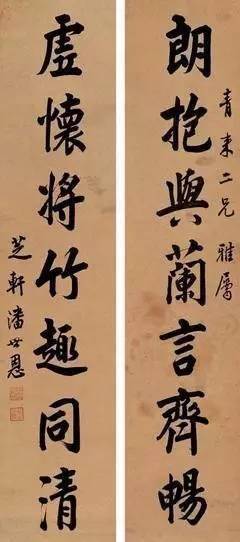 青來二兄雅屬
朗抱與蘭言齊暢
虛懷將竹趣同清
芝軒潘世恩